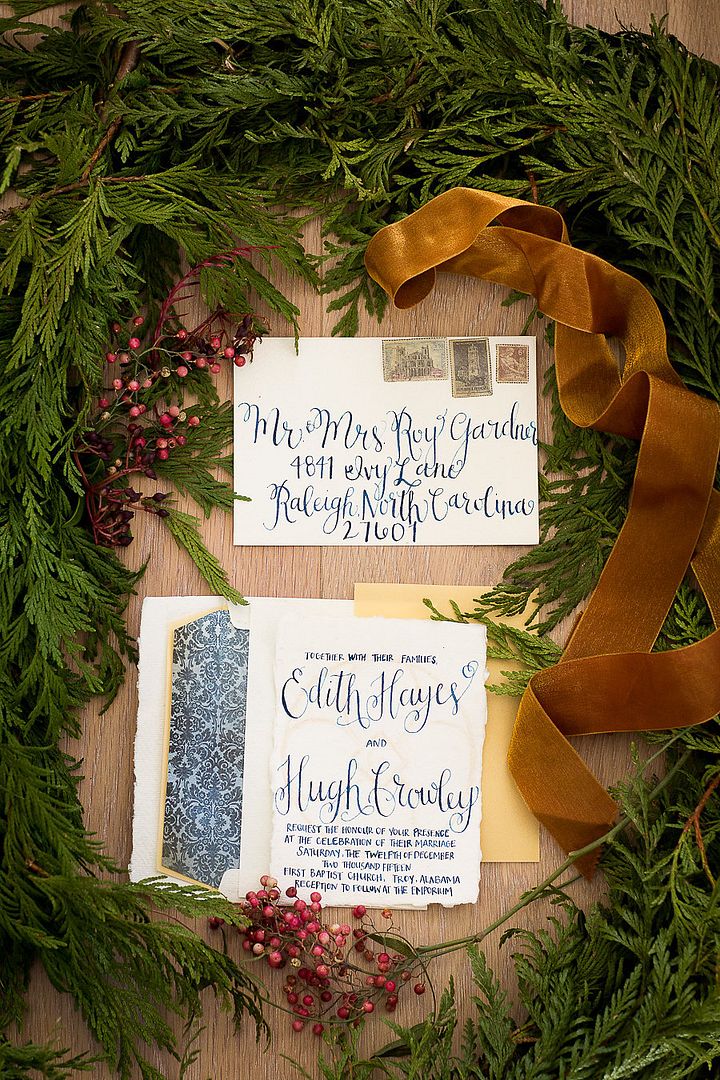 Mr. & Mrs. Roy Gardner
4841 Ivy Lane
Raleigh, North Carolina
27601
TOGETHER WITH THEIR FAMILIES,
Edith Hayes
AND
Hugh Crowley
REQUEST THE HONOUR OF YOUR PRESENCE
AT THE CELEBRATION OF THEIR MARRIAGE
SATURDAY, THE TWELFTH OF DECEMBER
TWO THOUSAND FIFTEEN
FIRST BAPTIST CHURCH, TROY, ALABAMA
RECEPTION TO FOLLOW AT THE EMPORIUM